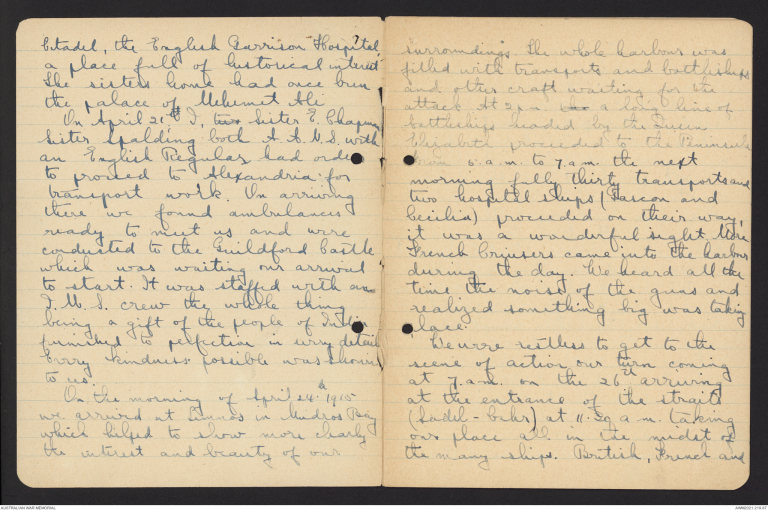 Citadel, the English Garrison Hospital,
a place full of historical interest
The sisters home had once been
the palace of Mehemet Ali
On April 21st I, Sister E. Chapman
Sister Spalding both A.A.N.S. with
an English Regular had orders
to proceed to Alexandria for
transport work. On arriving
there we found ambulances
ready to meet us and were
conducted to the Guildford Castle
which was waiting our arrival
to start. It was staffed with an
I.M.S. crew the whole thing
being a gift of the people of India
furnished to perfection in every detail
Every kindness possible was shown
to us.
On the morning of April 24th 1915
we arrived at Lemnos in Mudros Bay
which helped to show more clearly
the interest and beauty of our
surroundings. The whole harbour was
filled with transports and battleships
and other craft waiting for the
attack. At 2 p.m. a long line of
battleships headed by the Queen
Elizabeth proceeded to the Peninsula
from 5 a.m. to 7 a.m. the next
morning fully thirty transports and
two hospital ships (Gascon and
Cecilia) proceeded on their way,
it was a wonderful sight. More
French Cruisers came into the harbour
during the day. We heard all the
time the noise of the guns and
realized something big was taking
place.
We were restless to get to the
scene of action our turn coming
at 7 a.m. on the 26th arriving
at the entrance of the straits
(Sadel-bahr) at 11.30 a.m. taking
our place all in the midst of
the many ships. British, French and
AUSTRALIAN WAR MEMORIAL